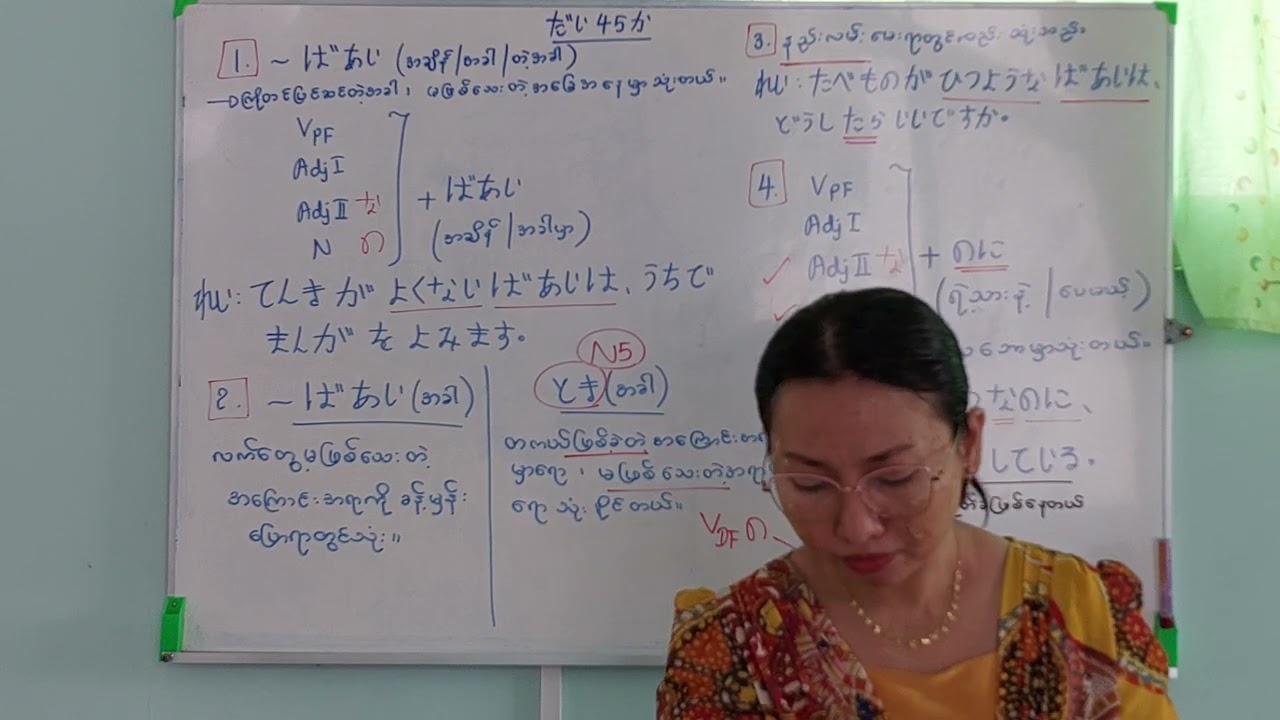 だい 45 か
1. ~ ばあい (အချိန် / အခါ / တဲ့အခါ)
→ ကြိုတင်ပြင်ဆင်တဲ့အခါ၊ မဖြစ်သေးတဲ့အခြေအနေမှာသုံးတယ်။
VPF
AdjI
AdjII な
N の
+ ばあい
(အချိန် / အခါမှာ)
れい: てんき が よくない ばあいは、うちで
まんが を よみます。
2. ~ ばあい (အခါ)
လက်တွေ့မဖြစ်သေးတဲ့
အကြောင်းအရာကို ခန့်မှန်း
ပြောရာတွင်သုံး။
N5
とき (အခါ)
တကယ်ဖြစ်ခဲ့တဲ့ အကြောင်း
မှာရော ၊ မဖြစ်သေးတဲ့
ရော သုံးနိုင်တယ်။
VDF の
3. နည်းလမ်း မေးရာတွင်လည်း သုံးသည်။
れい: たべものが ひつような ばあいは、
どうし たら いいですか。
4. VPF
AdjI
AdjII な
+ のに
(ရဲ့သားနဲ့ / ပေမယ့်)
သုံးတယ်။
なのに、
している。
ဖြစ်နေတယ်